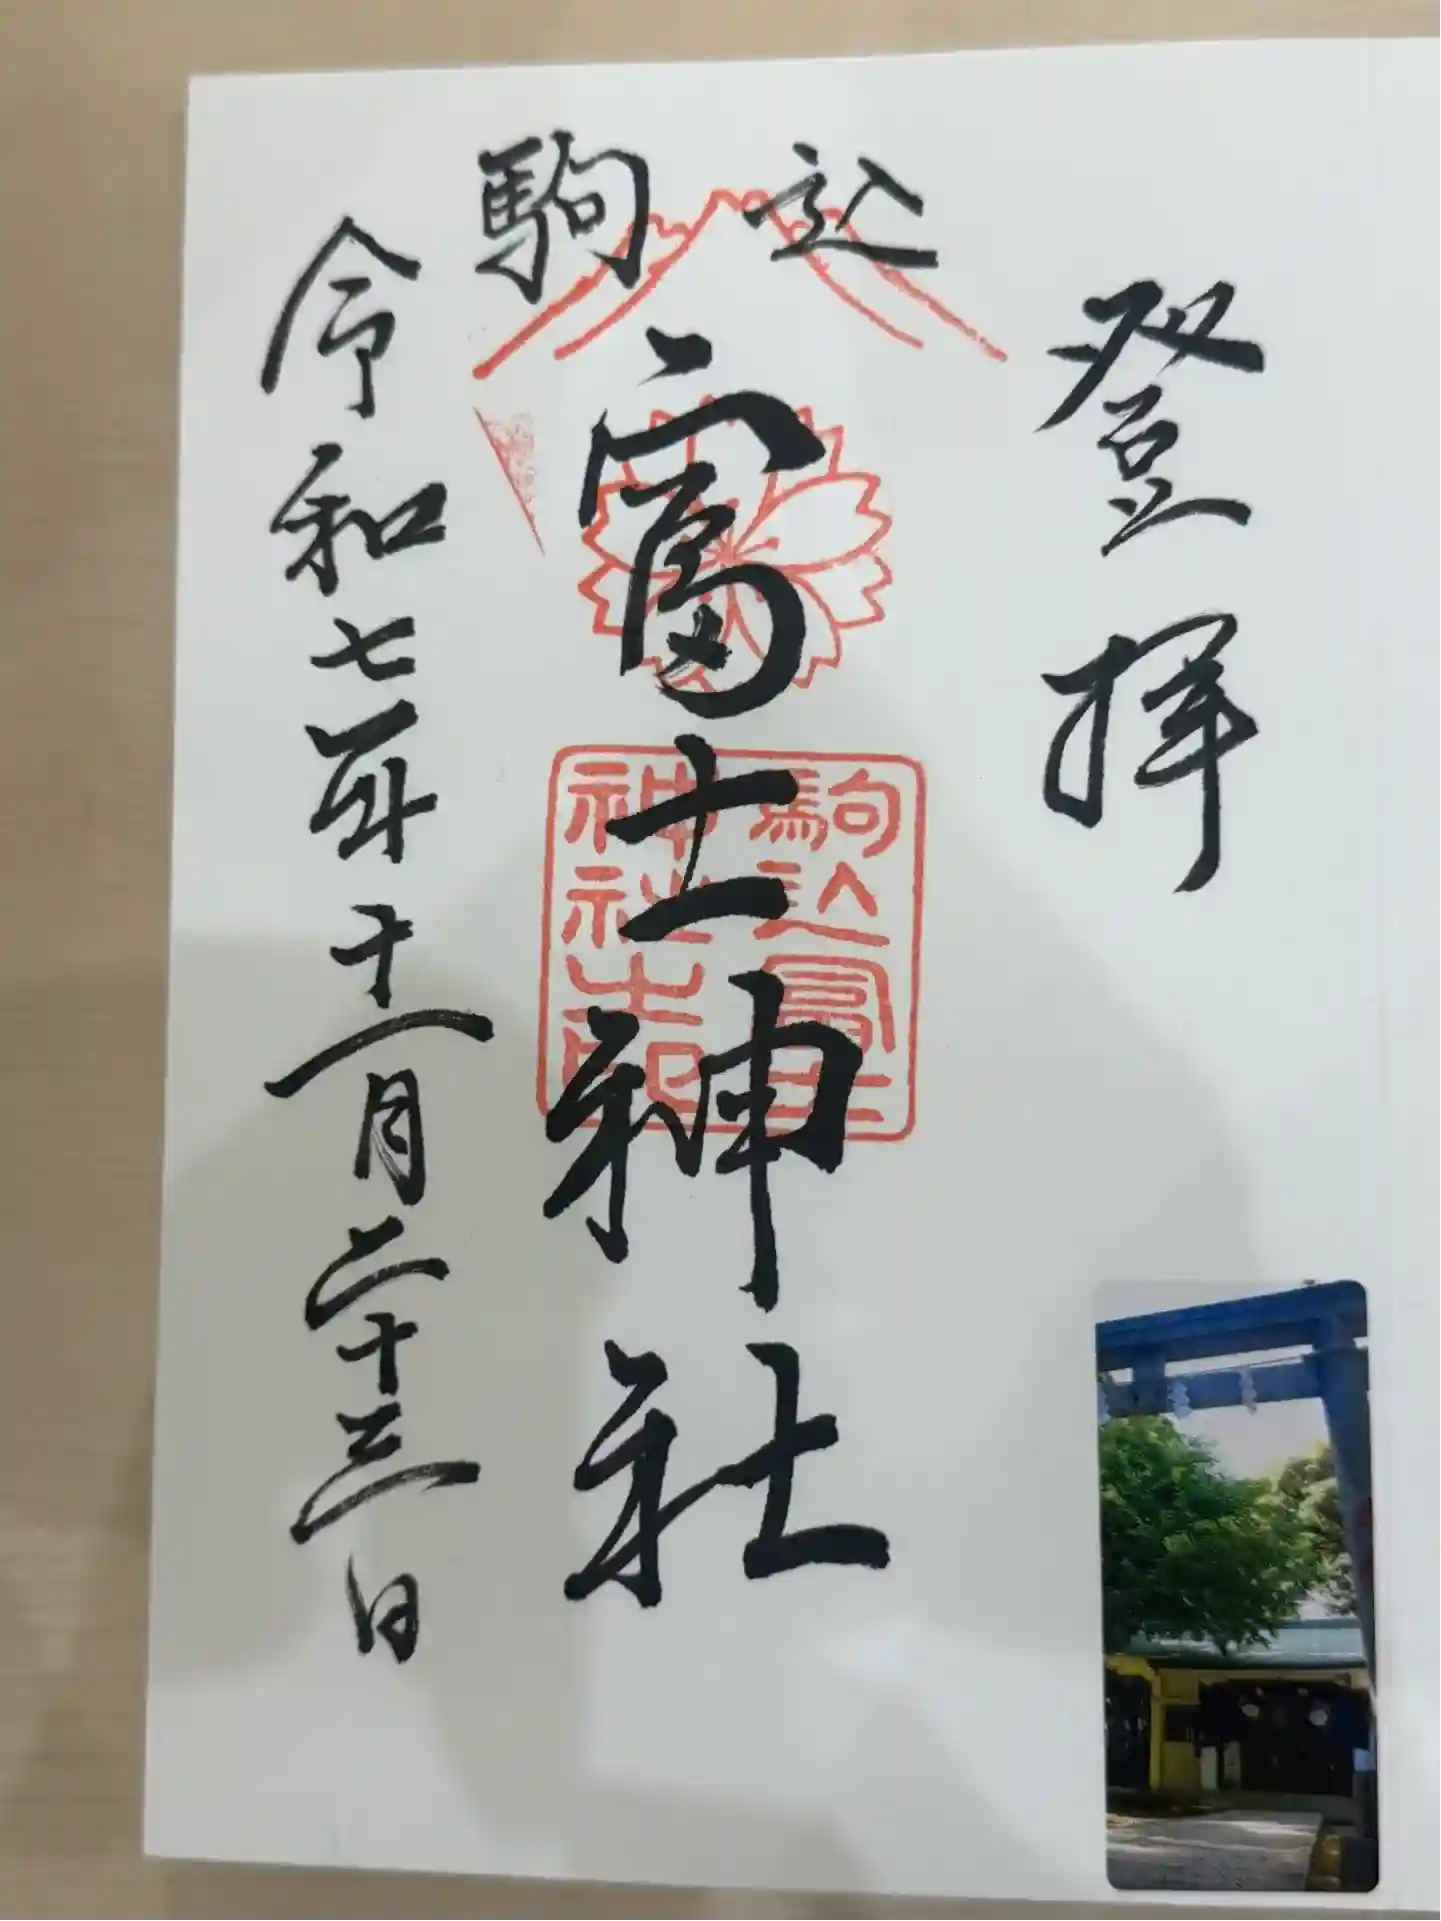 登拝
駒込
富士神社
駒込富士
神社之印
令和七年十一月二十三日